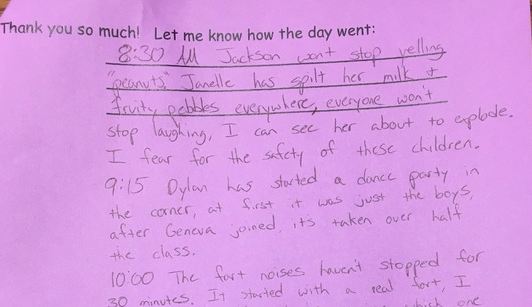 Thank you so much!  Let me know how the day went:
8:30 All Jackson won't stop yelling
"peanuts." Janelle has spilt her milk &
fruity pebbles everywhere, everyone won't
stop laughing, I can see her about to explode.
I fear for the safety of these children.
9:15 Dylan has started a dance party in
the corner, at first it was just the boys,
after Geneva joined, it's taken over half
the class.
10:00 The fart noises haven't stopped for
30 minutes. It started with a real fart, I
one